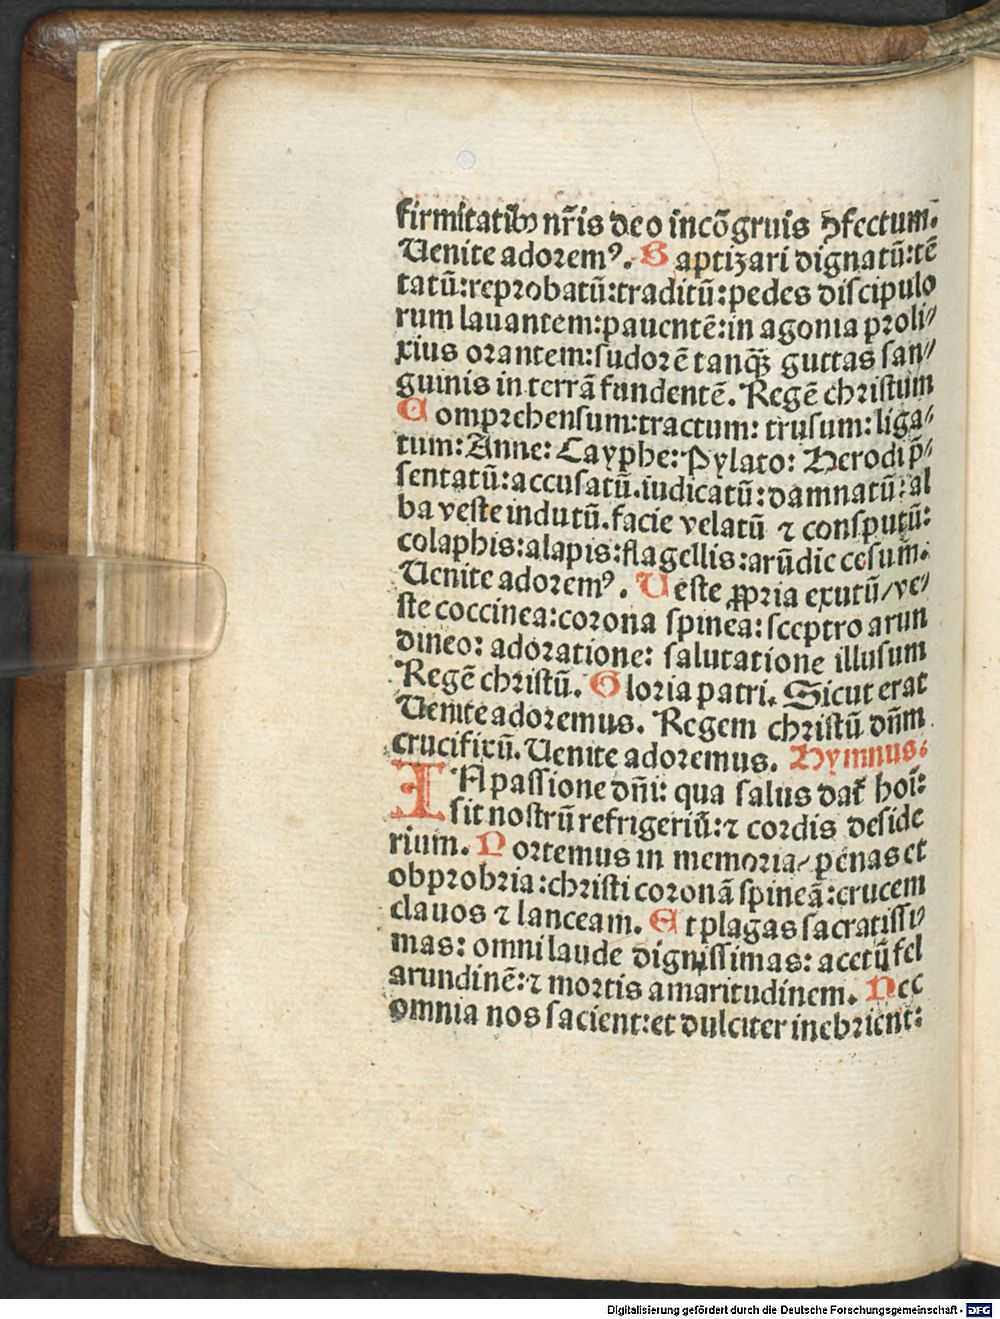 firmitatibꝰ nr̃is deo incõgruis ꝺfectum.
Uenite adoremꝰ. Baptizari dignatũ:tẽ
tatũ:reprobatũ:traditũ:pedes discipulo
rum lauantem:pauentẽ:in agonia proli⸗
xius orantem:sudorẽ tanꝙ̃ guttas san⸗
guinis in terrã fundentẽ. Regẽ christum
Comprehensum:tractum: trusum: liga⸗
tum: Anne: Cayphe: Pylato: Herodi p̃⸗
sentatũ:accusatũ.iudicatũ:damnatũ:al
ba veste indutũ.facie velatũ ⁊ consputũ:
colaphis:alapis:flagellis:arũdie cesum.
Uenite adoremꝰ. Ueste ꝓpria exutũ/ve⸗
ste coccinea:corona spinea:sceptro arun
dineo: adoratione: salutatione illusum
Regẽ christũ. Gloria patri. Sicut erat
Uenite adoremus. Regem christũ dñm
crucifixũ. Uenite adoremus. Hymnus.
IN passione dñi: qua salus dat᷑ hoĩ:
sit nostrũ refrigeriũ:⁊ cordis deside
rium. Portemus in memoria/ penas et
obprobria:christi coronã spineã:crucem
clauos ⁊ lanceam. Et plagas sacratissi⸗
mas: omni laude dignissimas: acetũ fel
arundinẽ:⁊ mortis amaritudinem. Nec
omnia nos sacient:et dulciter inebrient:
Digitalisierung gefördert durch die Deutsche Forschungsgemeinschaft - DFG